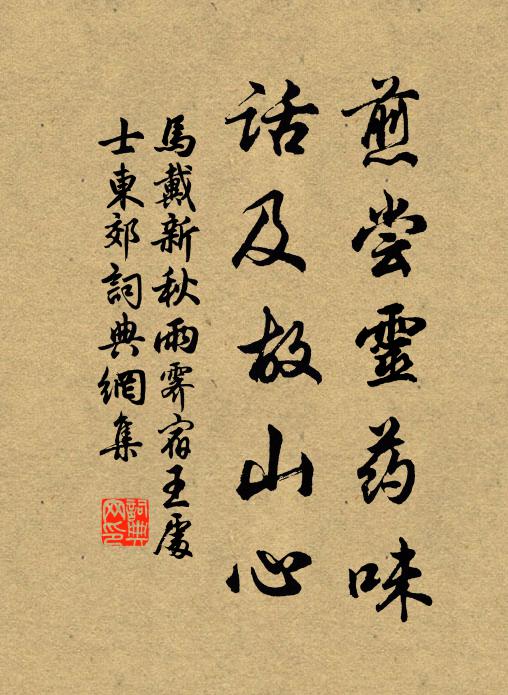 煎尝靈药味
话及故山心
馬戴新秋雨霽宿王處
士東郊詞典網集
詞典
网印